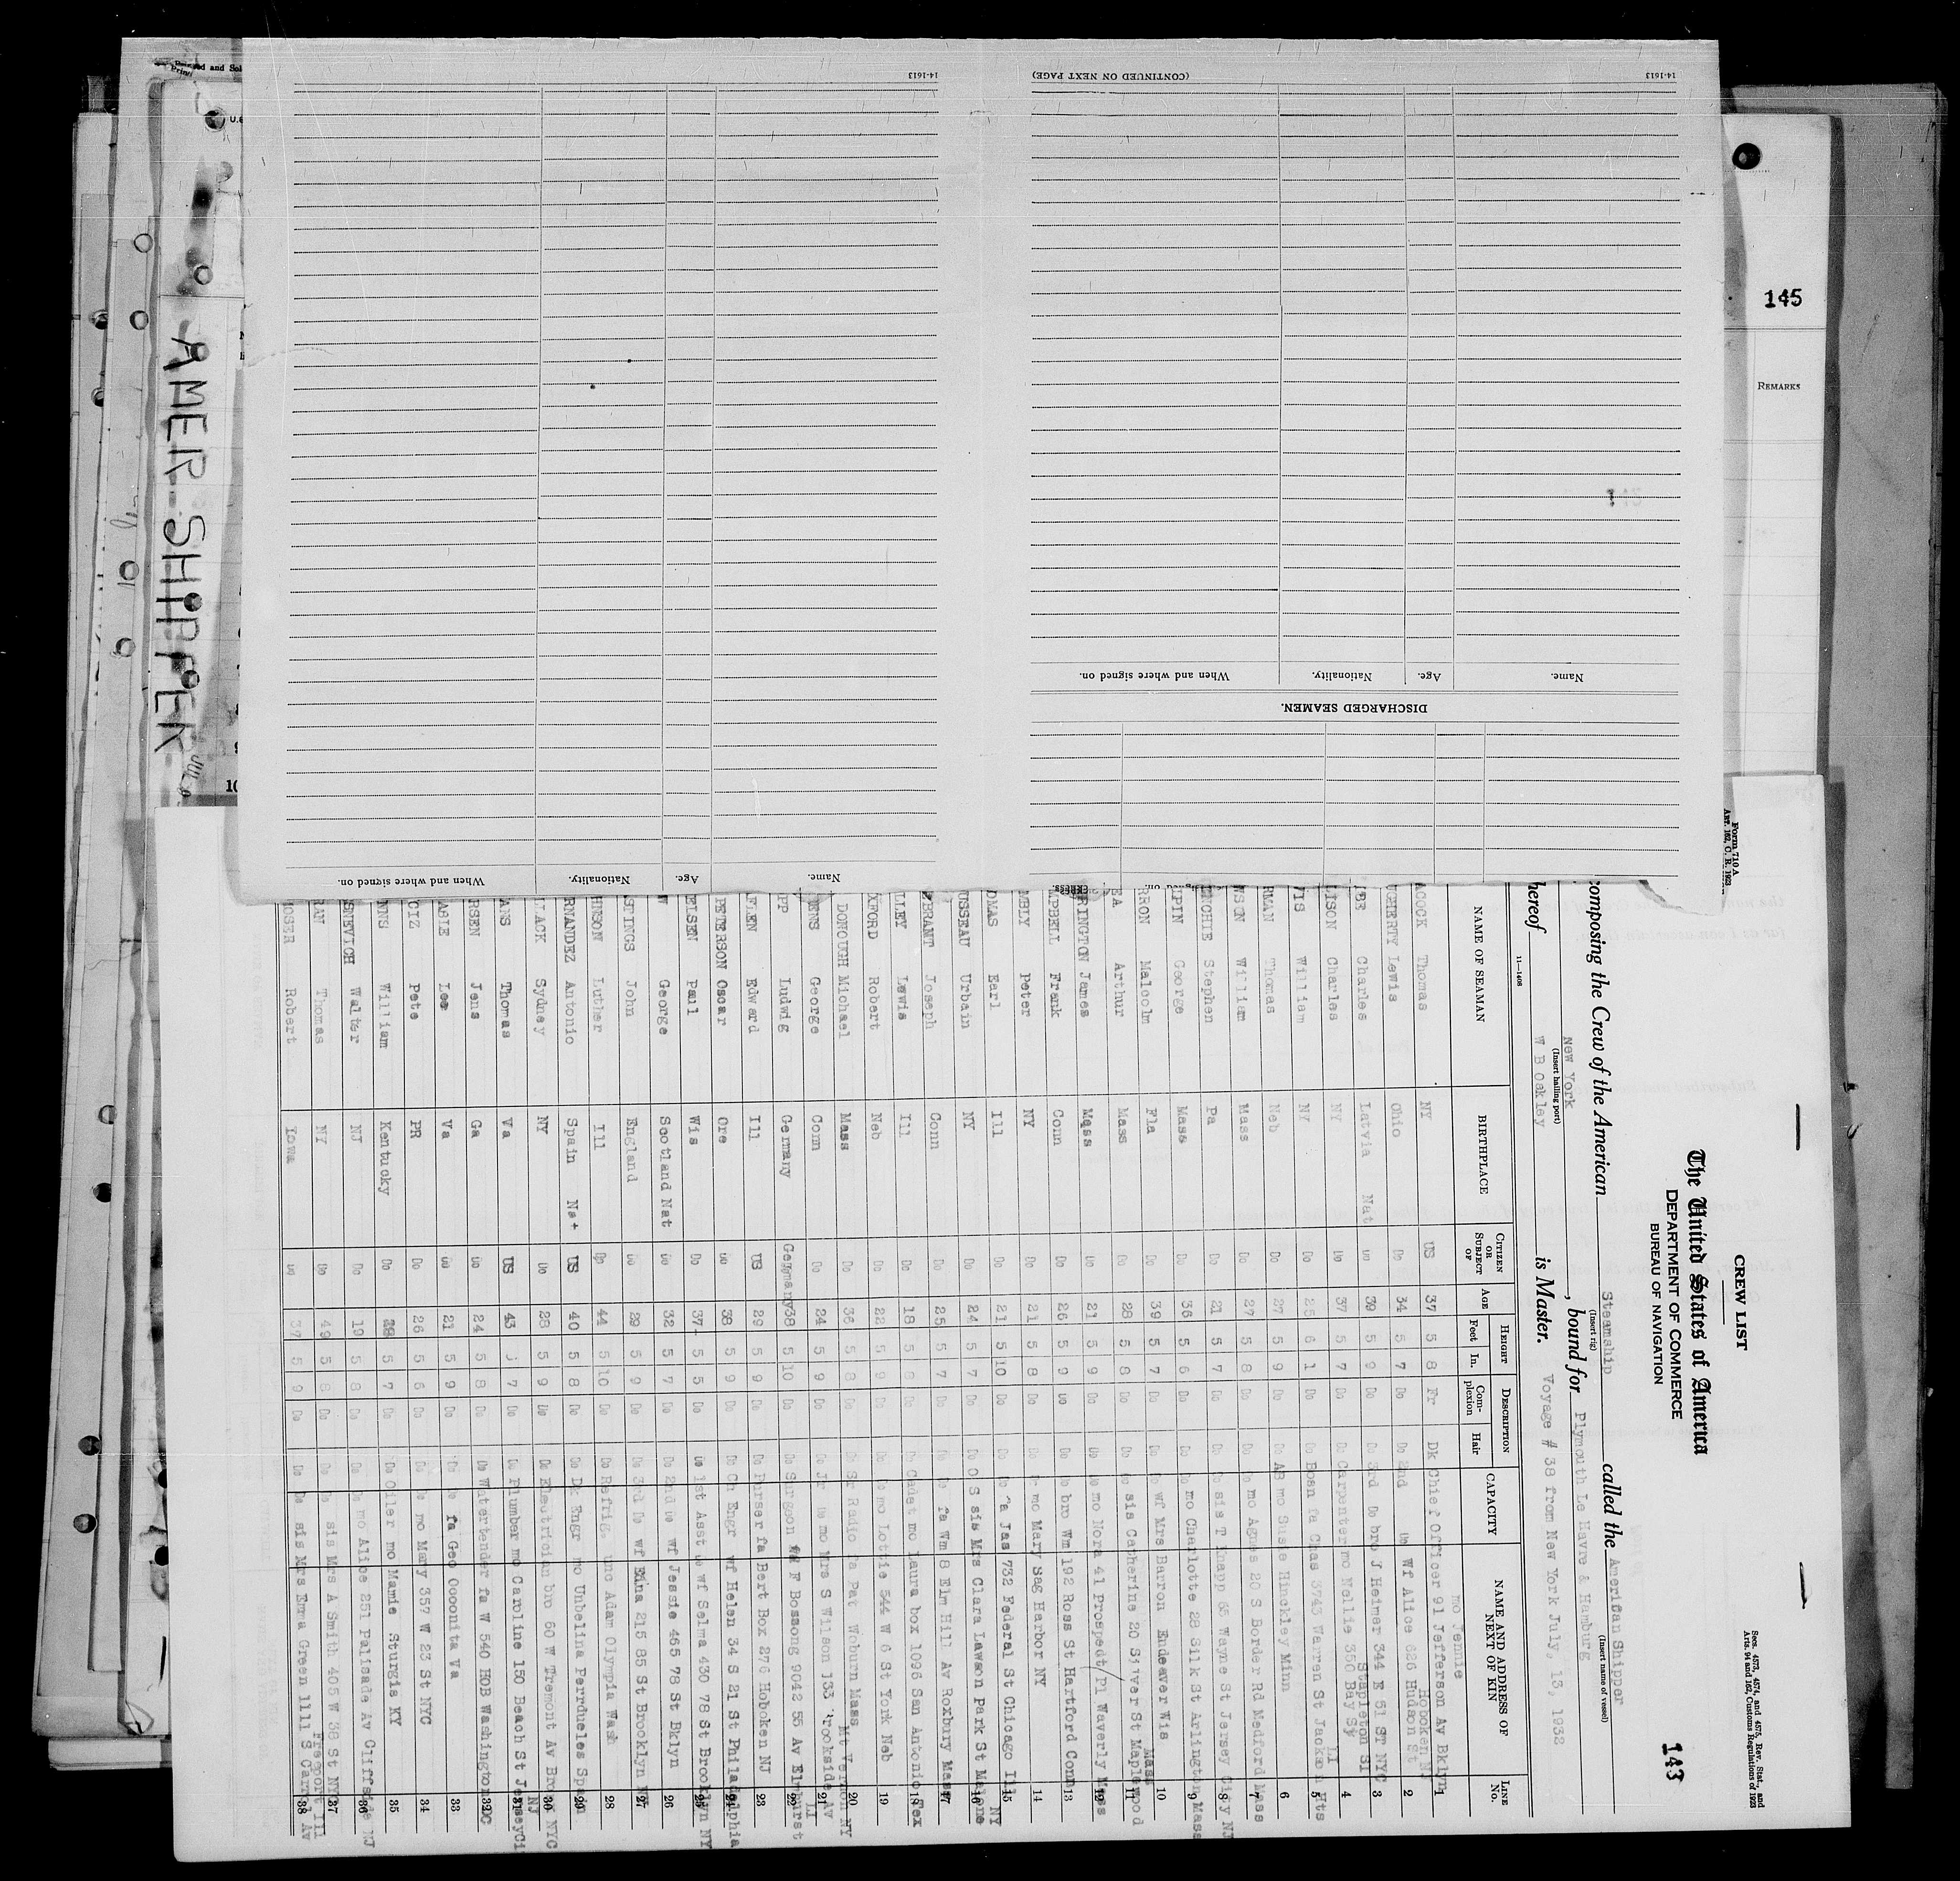 CREW LIST
Secs. 4573, 4574, and 4575, Rev. Stat., and
Arts. 94 and 162, Customs Regulations of 1923
The United States of America
DEPARTMENT OF COMMERCE
BUREAU OF NAVIGATION
143
Form 710 A
Art. 162, C. R. 1923
composing the Crew of the American Steamship called the Amerifan Shipper
(Insert rig) (Insert name of vessel)
New York, bound for Plymouth Le Havre & Hamburg
(Insert hailing port)
hereof W B Oakley is Master. Voyage # 38 from New York July, 13, 1932
11—1408
NAME OF SEAMAN BIRTHPLACE CITIZEN OR SUBJECT OF AGE HEIGHT Feet In. DESCRIPTION Complexion Hair CAPACITY NAME AND ADDRESS OF NEXT OF KIN LINE No.
mo Jennie
ACOCK Thomas NY US 37 5 8 Fr Dk Chief Officer 91 Jefferson Av Bklyn 1
UCHERTY Lewis Ohio Do 34 5 7 Do Do 2nd Do Wf Alice 626 Hudson St Hoboken NJ 2
UBE Charles Latvia Nat Do 39 5 9 Do Do 3rd Do bro J Heimer 344 E 51 ST NYC 3
LISON Charles NY Do 37 5 7 Do Do Carpenter mo Nellie 350 Bay St Stapleton SI 4
VIS William NY Do 25 6 1 Do Do Bosn fa Chas 3743 Warren St Jackson Hts LI 5
RMAN Thomas Neb Do 27 5 9 Do Do AB mo Susie Hinckley Minn 6
WSON William Mass Do 27 5 8 Do Do Do mo Agnes 20 S Border Rd Medford Mass 7
ENCHIE Stephen Pa Do 21 5 7 Do Do Do sis T Knapp 65 Wayne St Jersey City NJ 8
IPIN George Mass Do 36 5 6 Do Do Do mo Charlotte 28 Silk St Arlington Mass 9
RRON Malcolm Fla Do 39 5 7 Do Do Do wf Mrs Barron Endeaver Wis 10
EA Arthur Mass Do 28 5 8 Do Do Do sis Catherine 20 Silver St Maplewood Mass 11
RRINGTON James Mass Do 21 5 9 Do Do Do mo Nora 41 Prospedt Pl Waverly Mass 12
MPBELL Frank Conn Do 26 5 9 Do Do Do bro Wm 192 Ross St Hartford Conn 13
MBLY Peter NY Do 21 5 8 Do Do Do mo Mary Sag Harbor NY 14
OMAS Earl Ill Do 21 5 10 Do Do Do fa Jas 732 Federal St Chicago Ill 15
USSEAU Urbain NY Do 24 5 7 Do Do O S sis Mrs Clara Lawson Park St Malone NY 16
Joseph Conn Do 25 5 7 Do Do Do fa Wm 8 Elm Hill Av Roxbury Mass 17
LLEY Lewis Ill Do 18 5 8 Do Do Cadet mo Laura box 1096 San Antonio Tex 18
XFORD Robert Neb Do 22 5 9 Do Do Do mo Lottie 544 W 6 St York Neb 19
DONOUGH Michael Mass Do 36 5 8 Do Do Sr Radio fa Pat Woburn Mass 20
ENS George Conn Do 24 5 9 Do Do Jr Do mo Mrs S Wilson 133 Brookside Av Mt Vernon NY 21
PP Ludwig Germany Germany 38 5 10 Do Do Surgeon F Bossong 9042 55 Av Elmhurst LI 22
FLEN Edward Ill US 29 5 9 Do Do Purser fa Bert Box 276 Hoboken NJ 23
PETERSON Oscar Ore Do 38 5 9 Do Do Ch Engr wf Helen 34 S 21 St Philadelphia 24
ELSEN Paul Wis Do 37 5 5 Do Do 1st Asst Do wf Selma 430 78 St Brooklyn NY 25
W George Scotland Nat Do 32 5 7 Do Do 2nd Do wf Jessie 465 78 St Bklyn 26
STINGS John England Do 29 5 9 Do Do 3rd Do wf Edna 215 85 St Brooklyn NY 27
HNSON Luther Ill Do 44 5 10 Do Do Refrig. unc Adam Olympia Wash 28
RNANDEZ Antonio Spain Nat US 40 5 8 Do Do Dk Engr mo Unbelina Perrdueles Spain 29
LLACK Sydney NY Do 28 5 9 Do Do Electrcin bro 60 W Tremont Av Bronx NYC 30
ANS Thomas Va US 43 7 Do Do Plumber mo Caroline 150 Beach St Jersey Ci NJ 31
RSEN Jens Ga Do 24 5 8 Do Do Watertender fa W 540 HOB Washington DC 32
ASIE Lee Va Do 21 5 9 Do Do Do fa Geo Ocoonita Va 33
OIZ Pete PR Do 26 5 5 Do Do Do mo Mary 357 W 23 St NYC 34
NNS William Kentucky Do 38 5 7 Do Do Oiler mo Mamie Sturgis KY 35
SNEVICH Walter NJ Do 19 5 8 Do Do Do mo Alice 251 Palisade Av Cliffside NJ 36
RAN Thomas NY Do 49 5 8 Do Do Do sis Mrs A Smith 405 W 38 St NYC 37
OSER Robert Iowa Do 37 5 9 Do Do Do sis Mrs Emma Green 1111 S Carn Av Freeport Ill 38
DISCHARGED SEAMEN.
Name. Age. Nationality. When and where signed on.
(CONTINUED ON NEXT PAGE)
14-1613
Name. Age. Nationality. When and where signed on.
14-1613
AMER-SHIPPER
145
REMARKS
10